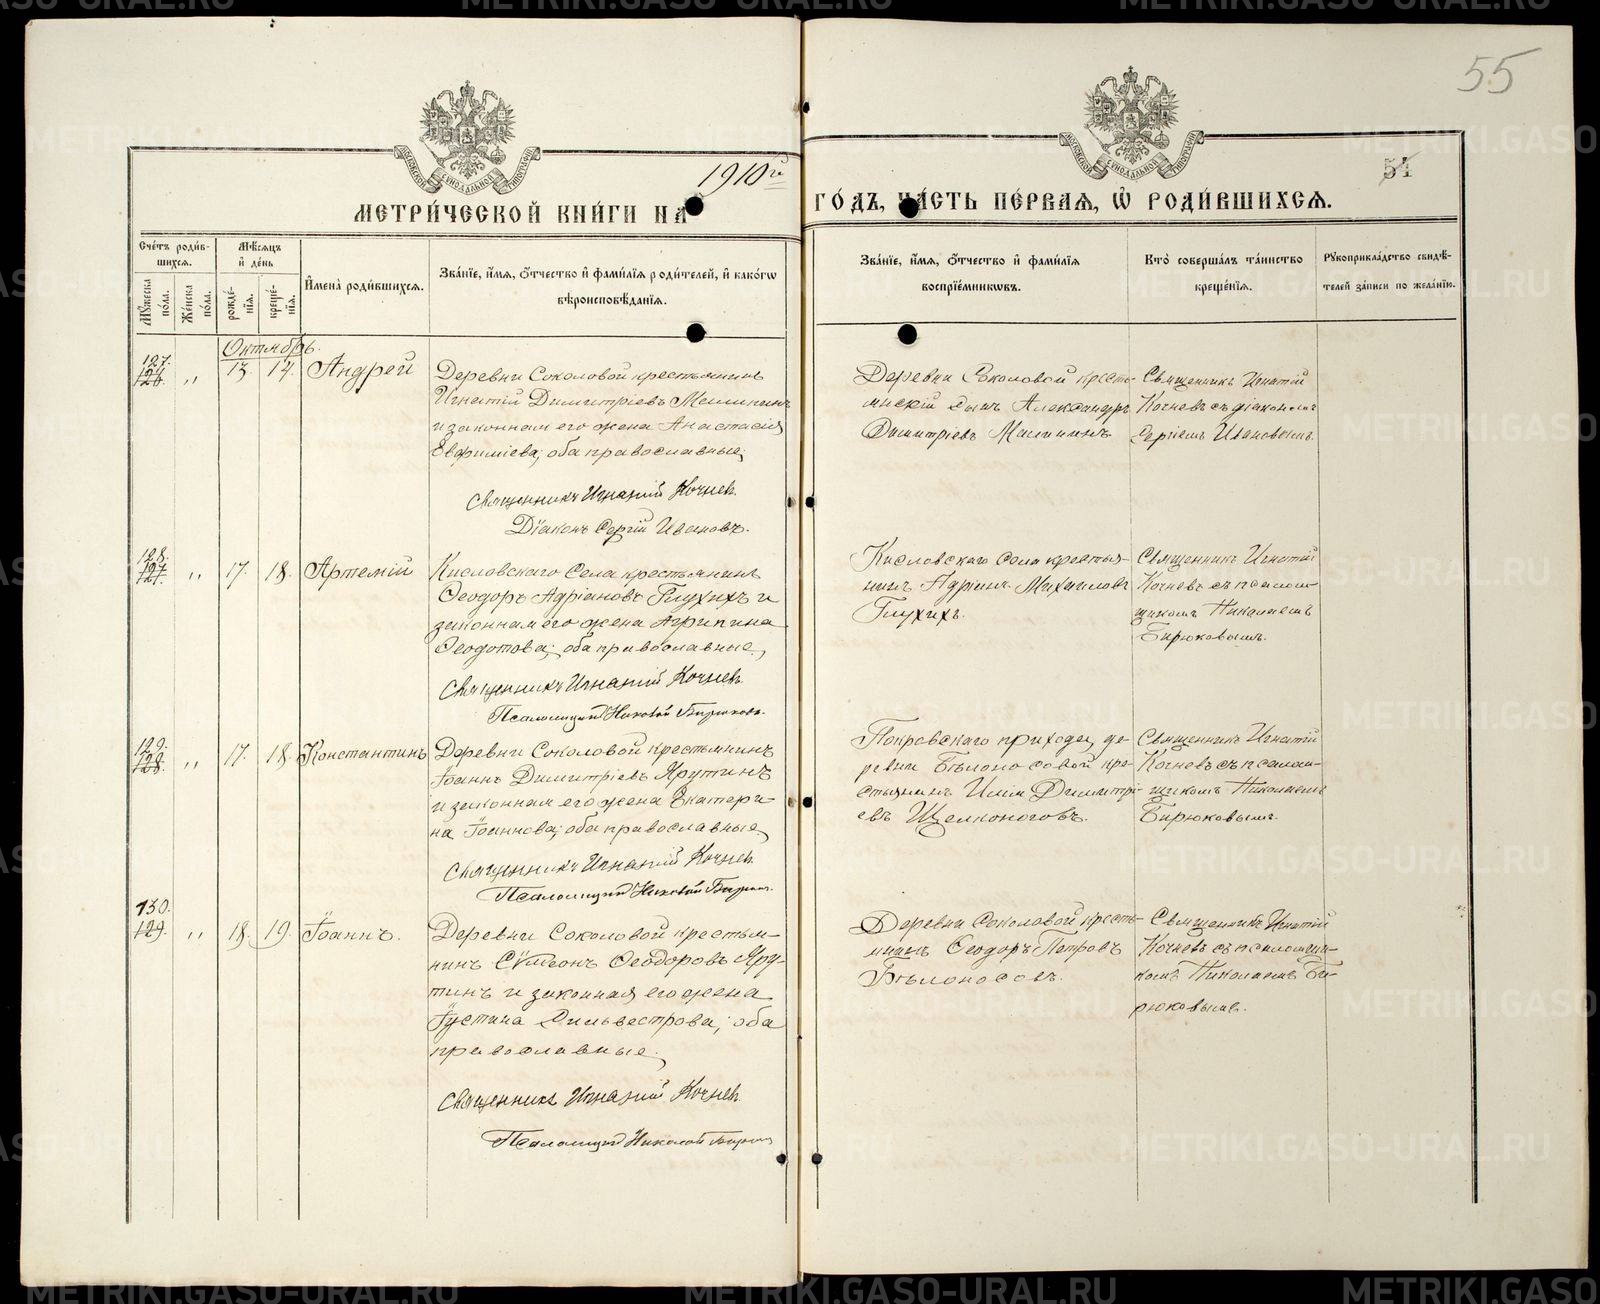 55
54
1910 го
МЕТРИ́ЧЕСКОЙ КНИ́ГИ НА
ГО́ДЪ, ЧА́СТЬ ПЕ́РВАЯ, Ѽ РОДИ́ВШИХСЯ.
Сче́тъ роди́в-
шихся.
Мѣ́сяцъ
и҆ де́нь
Мꙋ́жеска по́ла.
Же́нска по́ла.
рожде́-
нїя.
креще́-
нїя.
И҆мена̀ роди́вшихся.
Зва́нїе, и҆́мя, ѻ҆́тчество и҆ фами́лїя роди́телей, и҆ како́гѡ
вѣроисповѣ́данїя.
Зва́нїе, и҆́мя, ѻ҆́тчество и҆ фами́лїя
воспрїе́мникѡвъ.
Кто̀ соверша́лъ та́инство
креще́нїя.
Рꙋкоприкла́дство свидѣ́-
телей за́писи по жела́нїю.
Октябрь.
127.
126. „ 13. 14. Андрей
Деревни Соколовой крестьянинъ
Игнатій Димитріевъ Малининъ
и законная его жена Анастасія
Евфиміева; оба православные;
Священникъ Игнатій Кочнев.
Діаконъ Сергій Ивановъ.
Деревни Соколовой кресть-
янскій сынъ Александръ
Димитріевъ Малининъ.
Священникъ Игнатій
Кочневъ съ діакономъ
Сергіемъ Ивановымъ.
128.
127. „ 17. 18. Артемій
Кисловскаго Села крестьянинъ
Ѳеодоръ Адріановъ Глухихъ и
законная его жена Агрипина
Ѳеодотова; оба православные;
Священникъ Игнатій Кочнев.
Псаломщикъ Николай Бирюковъ.
Кисловскаго села крестья-
нинъ Адріанъ Михаиловъ
Глухихъ.
Священникъ Игнатій
Кочневъ съ псалом-
щикомъ Николаемъ
Бирюковымъ.
129.
128. „ 17. 18. Константинъ
Деревни Соколовой крестьянинъ
Іоаннъ Димитріевъ Ярутинъ
и законная его жена Екатери-
на Іоаннова; оба православные;
Священникъ Игнатій Кочнев.
Псаломщикъ Николай Бирюк.
Покровскаго прихода, де-
ревни Бѣлоносовой кре-
стьянинъ Илія Димитрі-
евъ Щелконоговъ.
Священникъ Игнатій
Кочневъ съ псалом-
щикомъ Николаемъ
Бирюковымъ.
130.
129. „ 18. 19. Іоаннъ.
Деревни Соколовой крестья-
нинъ Сѵмеонъ Ѳеодоровъ Яру-
тинъ и законная его жена
Іустина Сильвестрова; оба
православные;
Священникъ Игнатій Кочнев.
Псаломщикъ Николай Бирюк
Деревни Соколовой кресть-
янинъ Ѳеодоръ Петровъ
Бѣлоносовъ.
Священникъ Игнатій
Кочневъ съ псаломщи-
комъ Николаемъ Би-
рюковымъ.
METRIKI.GASO-URAL.RU